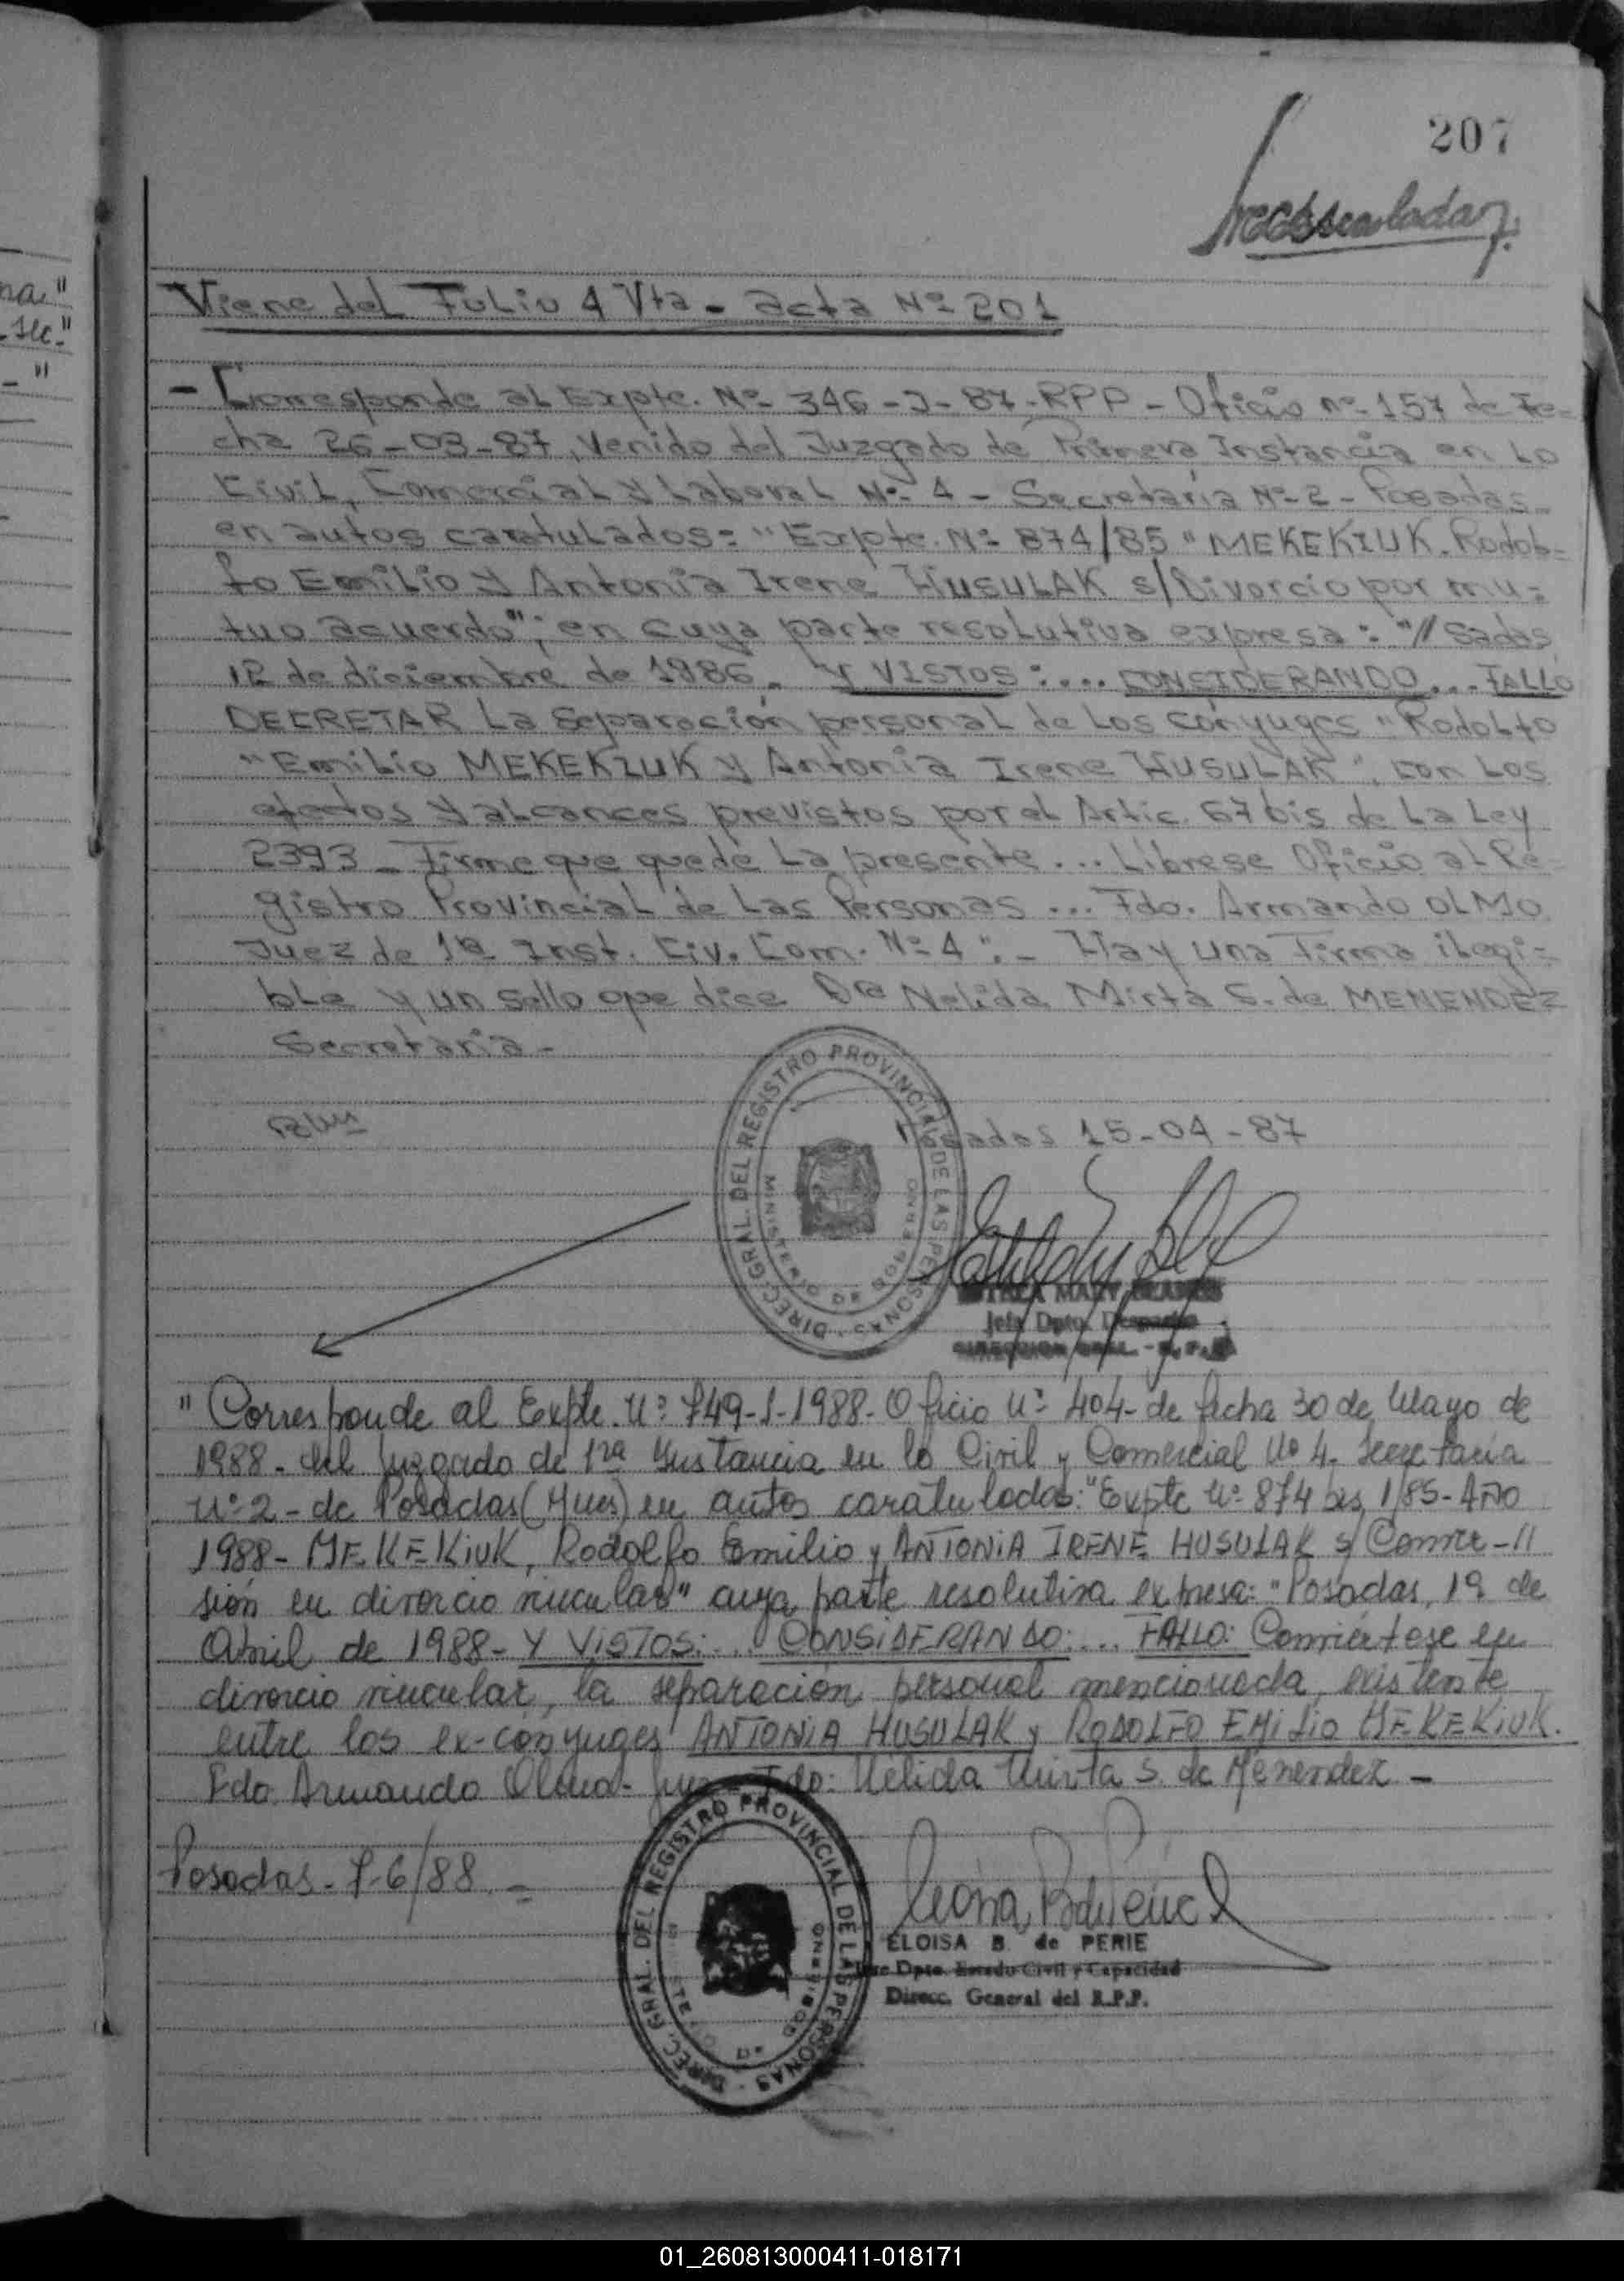 207
na"
sec."
"
Viene del Folio 4 Vta - acta Nº 201
- Corresponde al Expte. Nº 346-J-87-RPP - Oficio nº 157 de Fe=
cha 26-03-87, Venido del Juzgado de Primera Instancia en Lo
Civil, Comercial y Laboral Nº 4 - Secretaría Nº 2 - Posadas
en autos caratulados= "Expte. Nº 874/85 "MEKEKIUK. Rodol=
fo Emilio y Antonia Irene HUSULAK s/Divorcio por mu=
tuo acuerdo"; en cuya parte resolutiva expresa: "// sadas
12 de diciembre de 1986. Y VISTOS:... CONSIDERANDO... FALLO
DECRETAR La Separación personal de Los cónyuges "Rodolfo
"Emilio MEKEKIUK y Antonia Irene HUSULAK", con Los
efectos y alcances previstos por el Artic. 67 bis de La Ley
2393 - Firme que quede La presente... Líbrese Oficio al Re
gistro Provincial de Las Personas... Fdo. Armando OLMO
Juez de 1ra Inst. Civ. Com. Nº 4". - Hay una Firma ilegi=
ble y un Sello que dice Dra Nelida Mirta S. de MENENDEZ
Secretaria -
Posadas 15-04-87
DIREC. GRAL. DEL REGISTRO PROVINCIAL DE LAS PERSONAS
MINISTERIO DE GOBIERNO
Jefa Dpto. Despacho
"Corresponde al Expte. Nº 749-J-1988- Oficio Nº 404- de fecha 30 de Mayo de
1988- del Juzgado de 1ra Instancia en lo Civil y Comercial Nº 4. Secretaría
Nº 2 - de Posadas (Mnes) en autos caratulados: "Expte Nº 874 bis 1/85- AÑO
1988- MEKEKIUK, Rodolfo Emilio y ANTONIA IRENE HUSULAK s/ Conver-//
sión en divorcio vincular" cuya parte resolutiva expresa: "Posadas, 19 de
Abril de 1988- Y VISTOS:... CONSIDERANDO:... FALLO: Conviértese en
divorcio vincular, la separación personal mencionada, existente
entre los ex-cónyuges ANTONIA HUSULAK y RODOLFO EMILIO MEKEKIUK.
Fdo. Armando Olmo- Juez - Fdo: Nélida Mirta S. de Menendez -
Posadas - 7-6/88 -
DIREC. GRAL. DEL REGISTRO PROVINCIAL DE LAS PERSONAS
ELOISA B. de PERIE
Dpto. Estado Civil y Capacidad
Direcc. General del R.P.P.
01_260813000411-018171